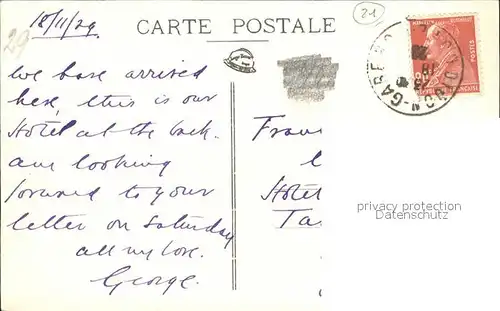 18/11/29
CARTE POSTALE
21
29
We have arrived
here, this is our
Hotel at the back.
am looking
forward to your
letter on Saturday
all my love.
George.
Fran
Hotel
Ta
privacy protection
Datenschutz